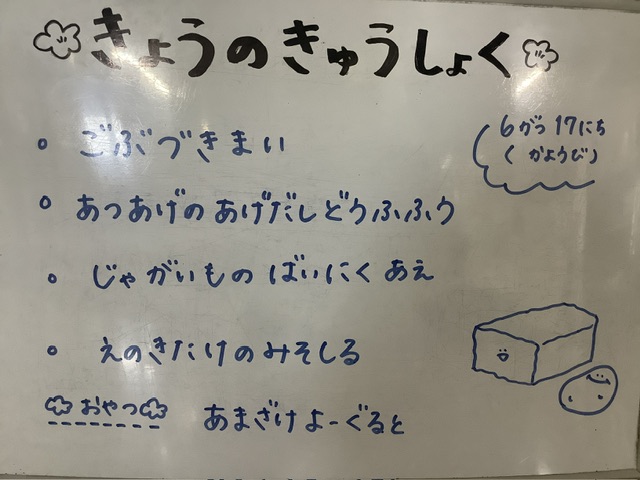 きょうのきゅうしょく
6がつ17にち
(かようび)
・ごぶづきまい
・あつあげのあげだしどうふふう
・じゃがいものばいにくあえ
・えのきだけのみそしる
おやつ あまざけよーぐると